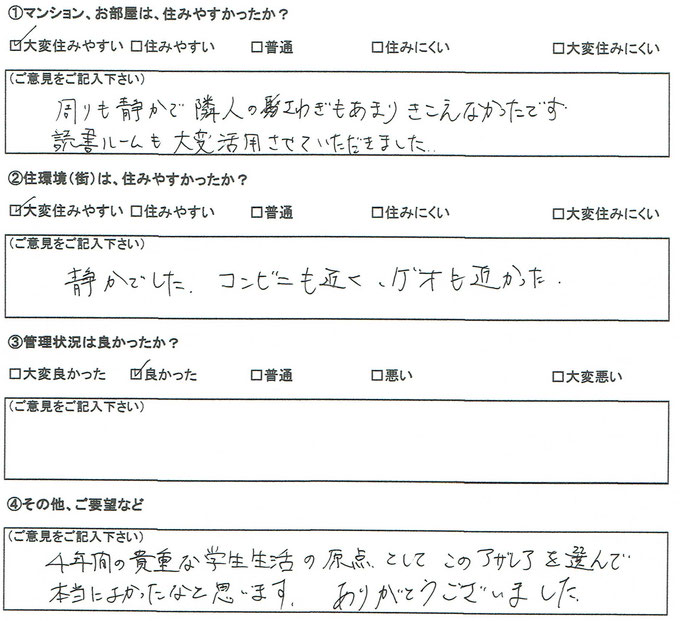 ①マンション、お部屋は、住みやすかったか？
☑大変住みやすい □住みやすい □普通 □住みにくい □大変住みにくい
(ご意見をご記入下さい)
周りも静かで隣人の騒さわぎもあまりきこえなかったです
読書ルームも大変活用させていただきました.
②住環境(街)は、住みやすかったか？
☑大変住みやすい □住みやすい □普通 □住みにくい □大変住みにくい
(ご意見をご記入下さい)
静かでした. コンビニも近く、ゲオも近かった.
③管理状況は良かったか？
□大変良かった ☑良かった □普通 □悪い □大変悪い
(ご意見をご記入下さい)
④その他、ご要望など
(ご意見をご記入下さい)
4年間の貴重な学生生活の原点としてこのアザレアを選んで
本当によかったなと思います. ありがとうございました.